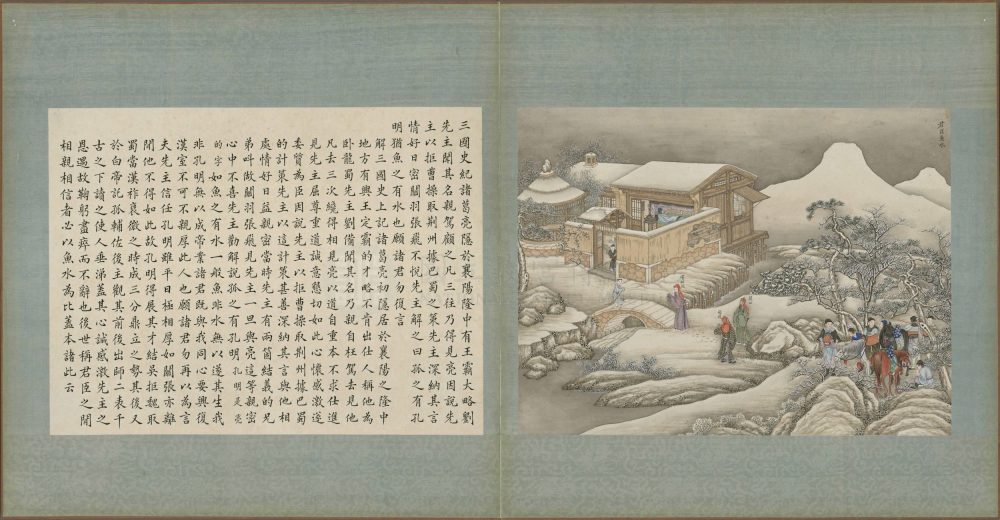 君臣魚水
三國史紀諸葛亮隱於襄陽隆中有王霸大略劉
先主聞其名親駕顧之凡三往乃得見亮因說先
主以拒曹操取荊州據巴蜀之策先主深納其言
情好日密關羽張飛不悅先主解之曰孤之有孔
明猶魚之有水也願諸君勿復言
解三國史上記諸葛亮初隱居於襄陽之隆中
地方有興王定霸的才略不肯出仕人稱他為
卧龍蜀先主劉備聞其名乃親自枉駕去見他
凡去三次纔得相見亮以道自重本不求仕進
見先主屈尊重道誠意懇切如此心懷感激遂
委質為臣因說先主以拒曹操取荊州據巴蜀
的計策先主以這計策甚善深納其言與他相
處情好日益親密當時先主有兩箇結義的兄
弟叫做關羽張飛見先主一旦與亮這等親密
心中不喜先主勸解說孤之有孔明孔明是亮
的字如魚之有水一般魚非水無以遂其生我
非孔明無以成帝業諸君既與我同心要興復
漢室不可不親厚此人也願諸君勿再以為言
夫先主信任孔明雖平日極相厚如關張亦離
間他不得如此故孔明得展其才結吳拒魏取
蜀當漢祚衰微之時成三分鼎立之勢其後又
於白帝託孤輔佐後主觀其前後出師二表千
古之下讀之使人垂涕蓋其心誠感激先主之
恩遇故鞠躬盡瘁而不辭也後世稱君臣之間
相親相信者必以魚水為比蓋本諸此云